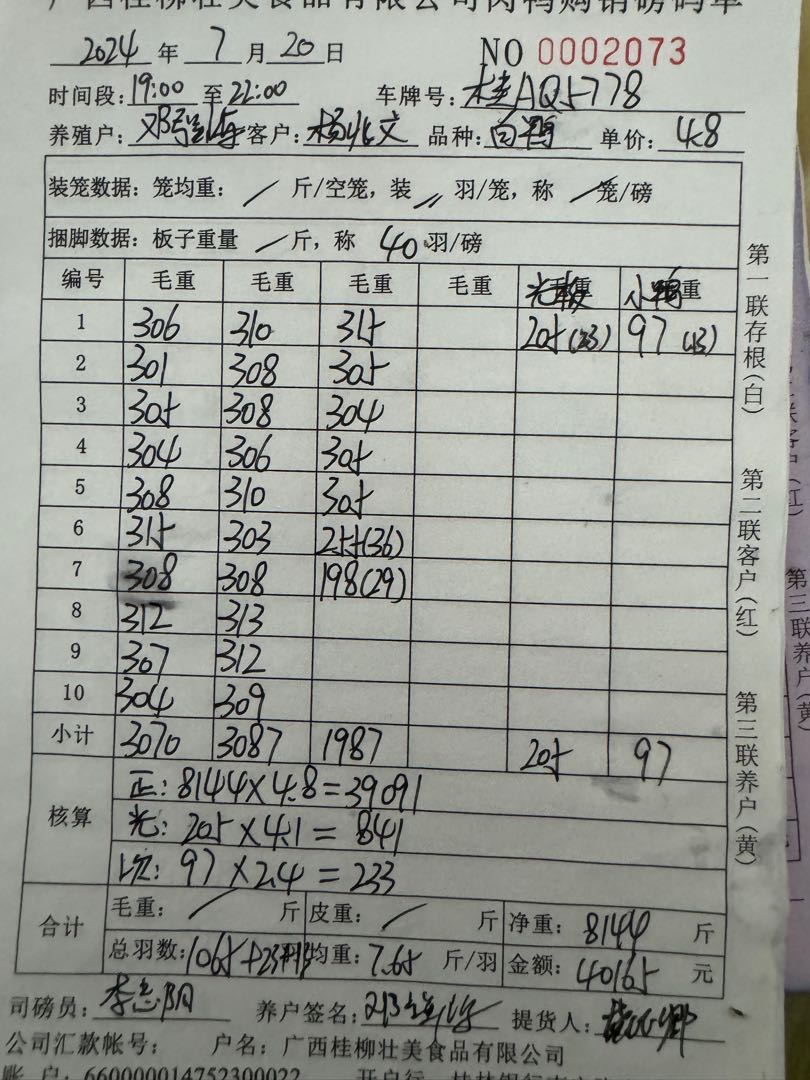 广西桂柳壮美食品有限公司肉鸭购销磅码单
2024 年 7 月 20 日 NO 0002073
时间段: 19:00 至 22:00 车牌号: 桂AQ5778
养殖户: 客户: 杨兆文 品种: 白鸭 单价: 4.8
装笼数据: 笼均重: / 斤/空笼, 装 〃 羽/笼, 称 / 笼/磅
捆脚数据: 板子重量 / 斤, 称 40 羽/磅
编号 毛重 毛重 毛重 毛重 光板 小鸭重
1 306 310 315 205(23) 97(13)
2 301 308 305
3 305 308 304
4 304 306 305
5 308 310 305
6 315 303 255(36)
7 308 308 198(29)
8 312 313
9 307 312
10 304 309
小计 3070 3087 1987 205 97
核算
正: 8144×4.8=39091
光: 205×4.1=841
次: 97×2.4=233
合计
毛重: / 斤 皮重: / 斤 净重: 8144 斤
总羽数: 1065+23+13 均重: 7.65 斤/羽 金额: 40165 元
司磅员: 李志阴 养户签名: 提货人:
公司汇款帐号: 户名: 广西桂柳壮美食品有限公司
账 户: 660000014752300022 开户行: 桂林银行
第一联存根(白)
第二联客户(红)
第三联养户(黄)
第三联养户(黄)